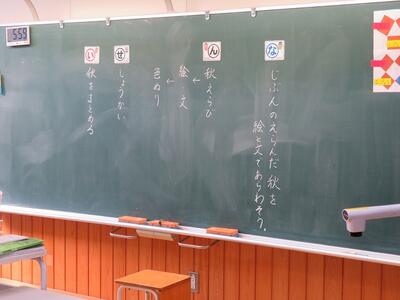 な
じぶんのえらんだ 秋を
絵と文であらわそう。
ん
秋えらび
↓
絵・文
↓
色ぬり
せ
しょうかい
い
秋をまとめる